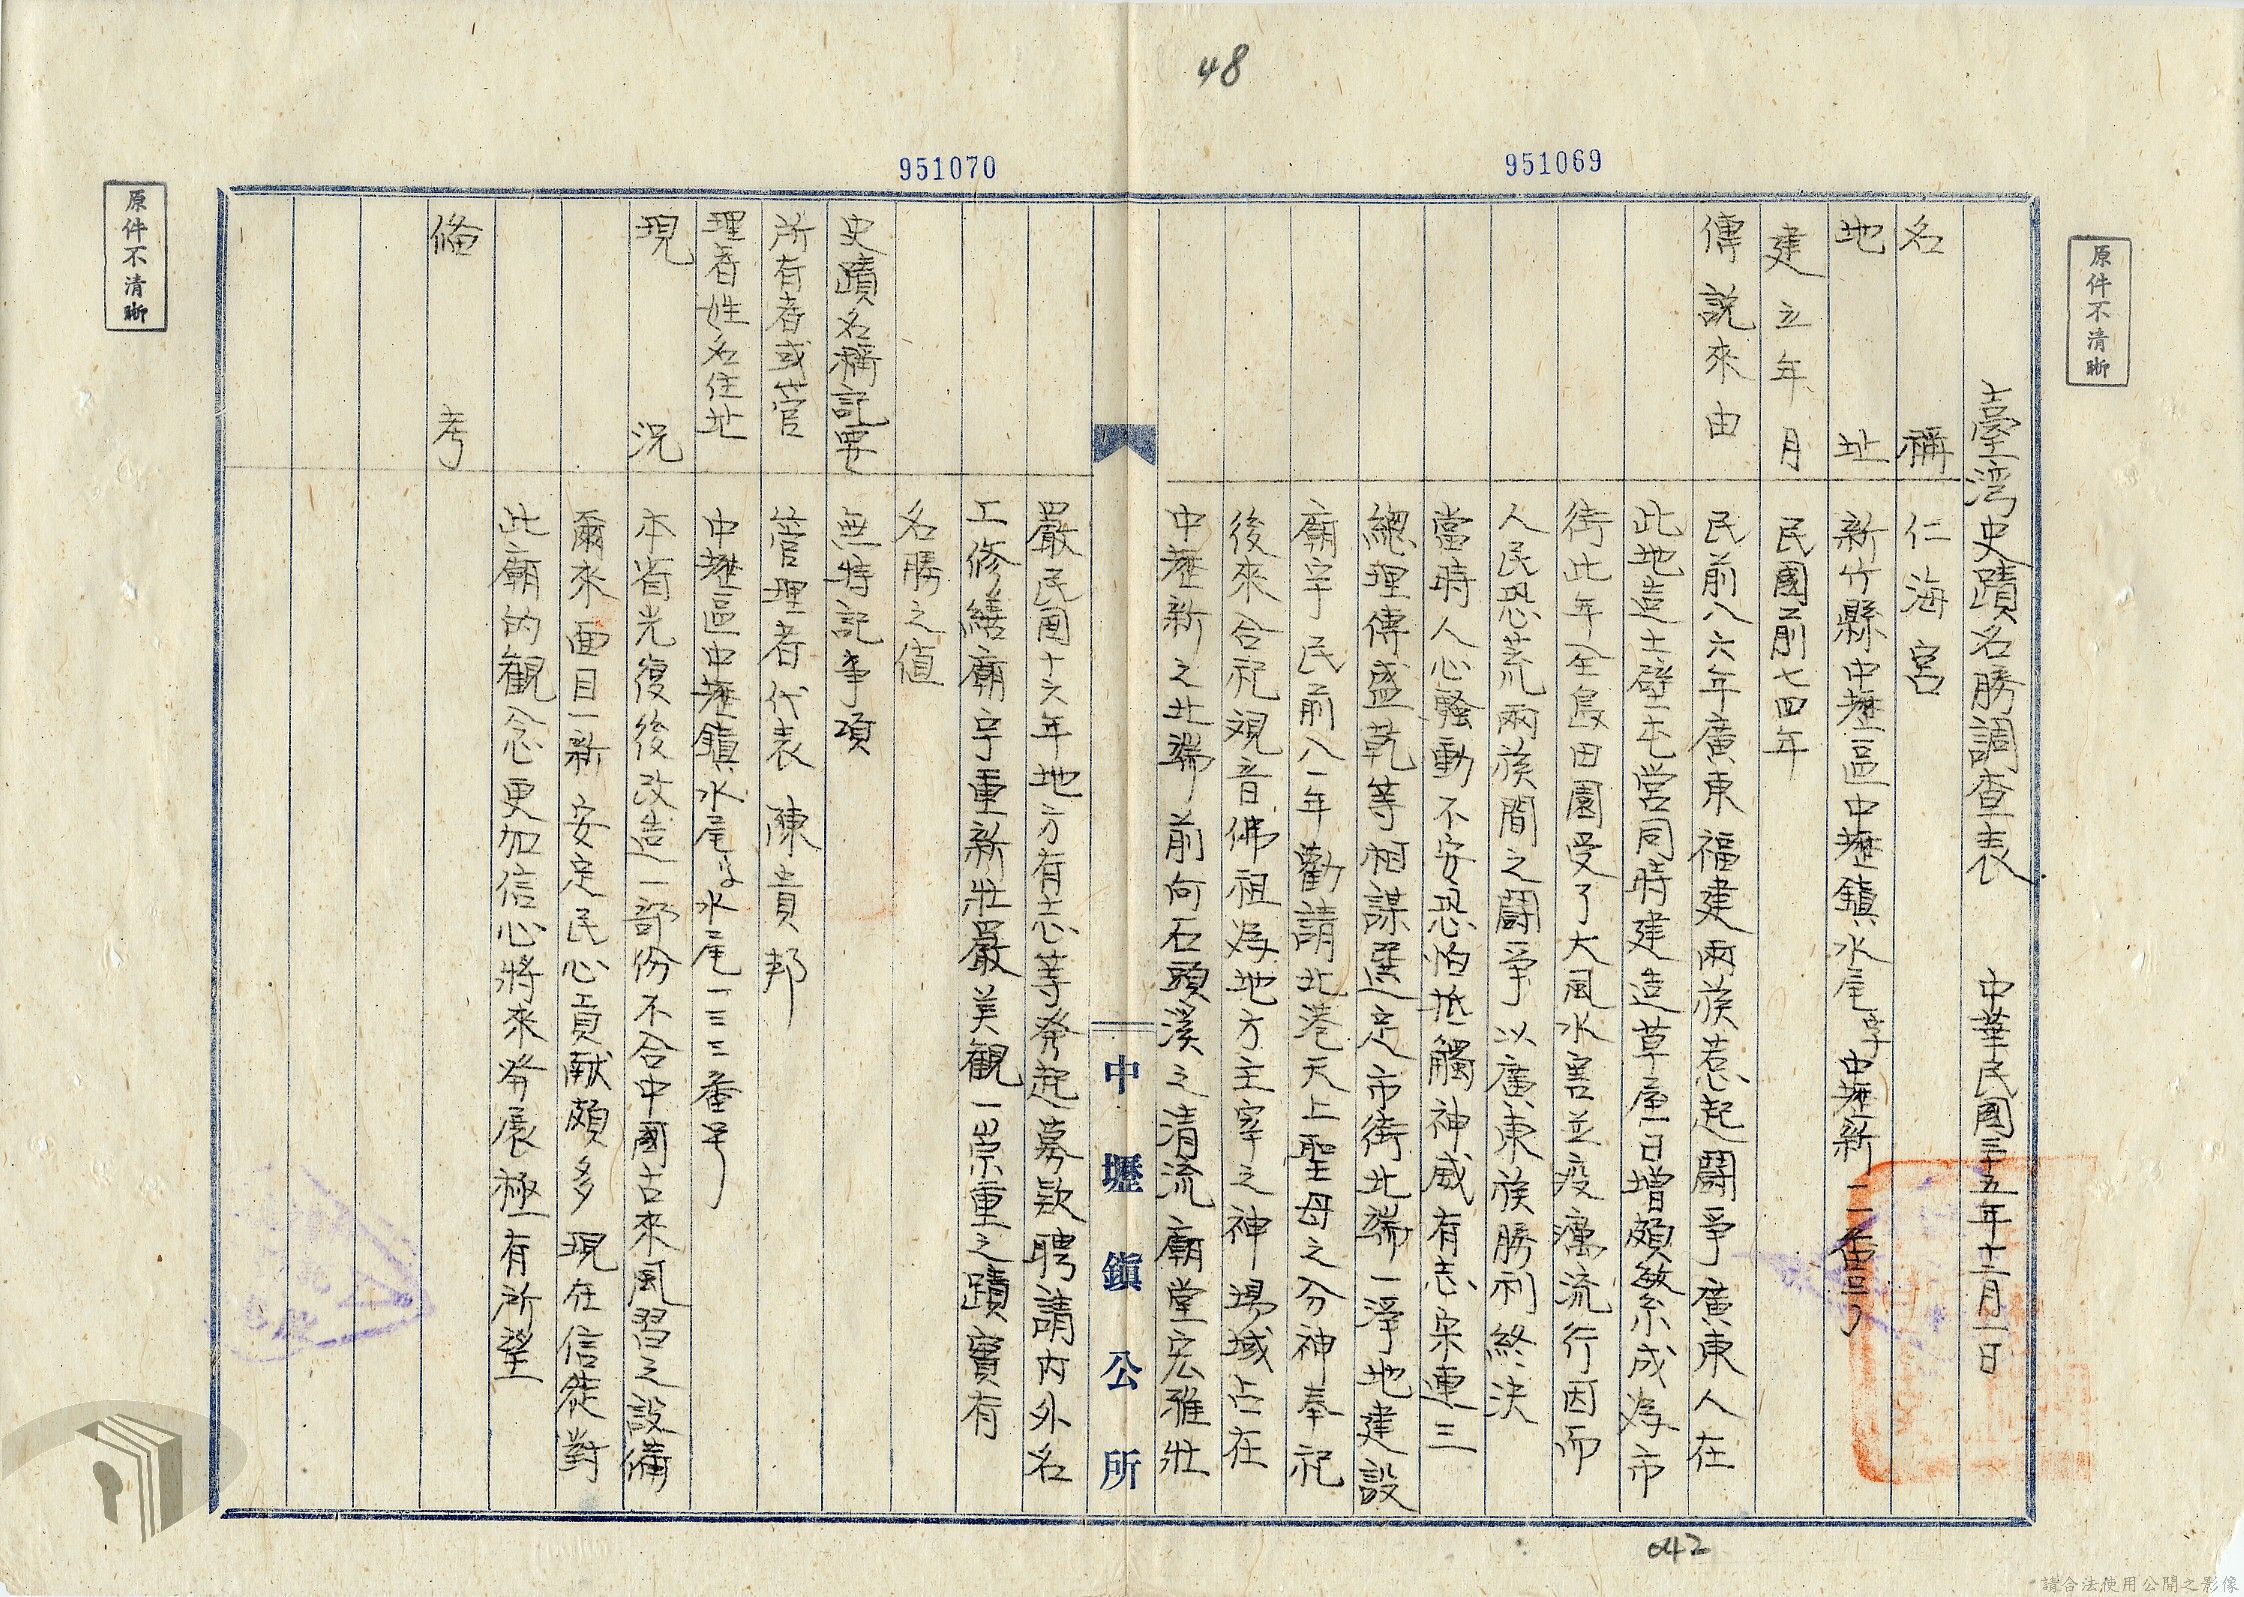 48
951069
951070
原件不清晰
原件不清晰
臺湾史蹟名勝調查表 中華民國三十五年十二月一日
名稱 仁海宮
地址 新竹縣中壢區中壢鎮水尾字中壢新二番号
建立年月 民國前七四年
傳說來由 民前八六年廣東福建兩族惹起鬪爭廣東人在
此地造土壁屯営同時建造草屋一日增頗繁成為市
街此年全島田園受了大風水害並疫癘流行因而
人民恐慌兩族間之鬪爭以廣東族勝利終決
當時人心騷動不安恐怕抵觸神威有志宋連三
總理傳盛乾等相謀選定市街北端一淨地建設
廟宇民前八一年勸請北港天上聖母之分神奉祀
後來合祀観音佛祖為地方主宰之神場域占在
中壢新之北端前向石頭溪之清流廟堂宏雅壯
中壢鎮公所
嚴民國十六年地方有志等発起募欵聘請內外名
工修繕廟宇重新壯嚴美観一崇重之蹟實有
名勝之值
史蹟名稱記要 無特記事項
所有者或管 管理者代表 陳貴邦
理者姓名住址 中壢區中壢鎮水尾字水尾一三三番号
現況 本省光復後改造一部份不合中國古來風習之設備
爾來面目一新安定民心貢献頗多現在信徒對
此廟的観念更加信心將來発展極有所望
備考
042
請合法使用公開之影像